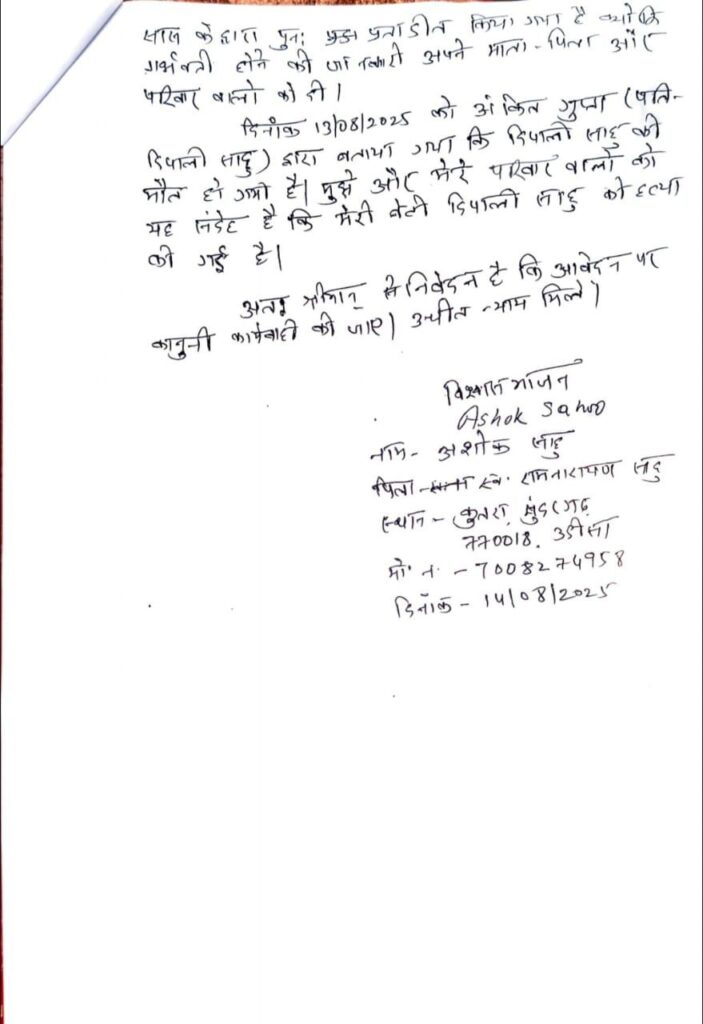 सास के द्वारा पुनः प्रताडीत किया गया है क्योंकि
गर्भवती होने की जानकारी अपने माता-पिता और
परिवार वालो को दी।
दिनाँक 13/08/2025 को अंकित गुप्ता (पति-
दिपाली साहु) द्वारा बताया गया कि दिपाली साहु की
मौत हो गयी है। मुझे और मेरे परिवार वालों को
यह संदेह है कि मेरी बेटी दिपाली साहु की हत्या
की गई है।
अतः श्रीमान् से निवेदन है कि आवेदन पर
कानुनी कार्यवाही की जाए। उचीत न्याय मिले।
Ashok Sahoo
नाम- अशोक साहु
पिता - स्व. रामनारायण साहु
स्थान - कुतरा, सुंदरगढ़
770018. उडीसा
मो. न. - 7008274958
दिनाँक - 14/08/2025